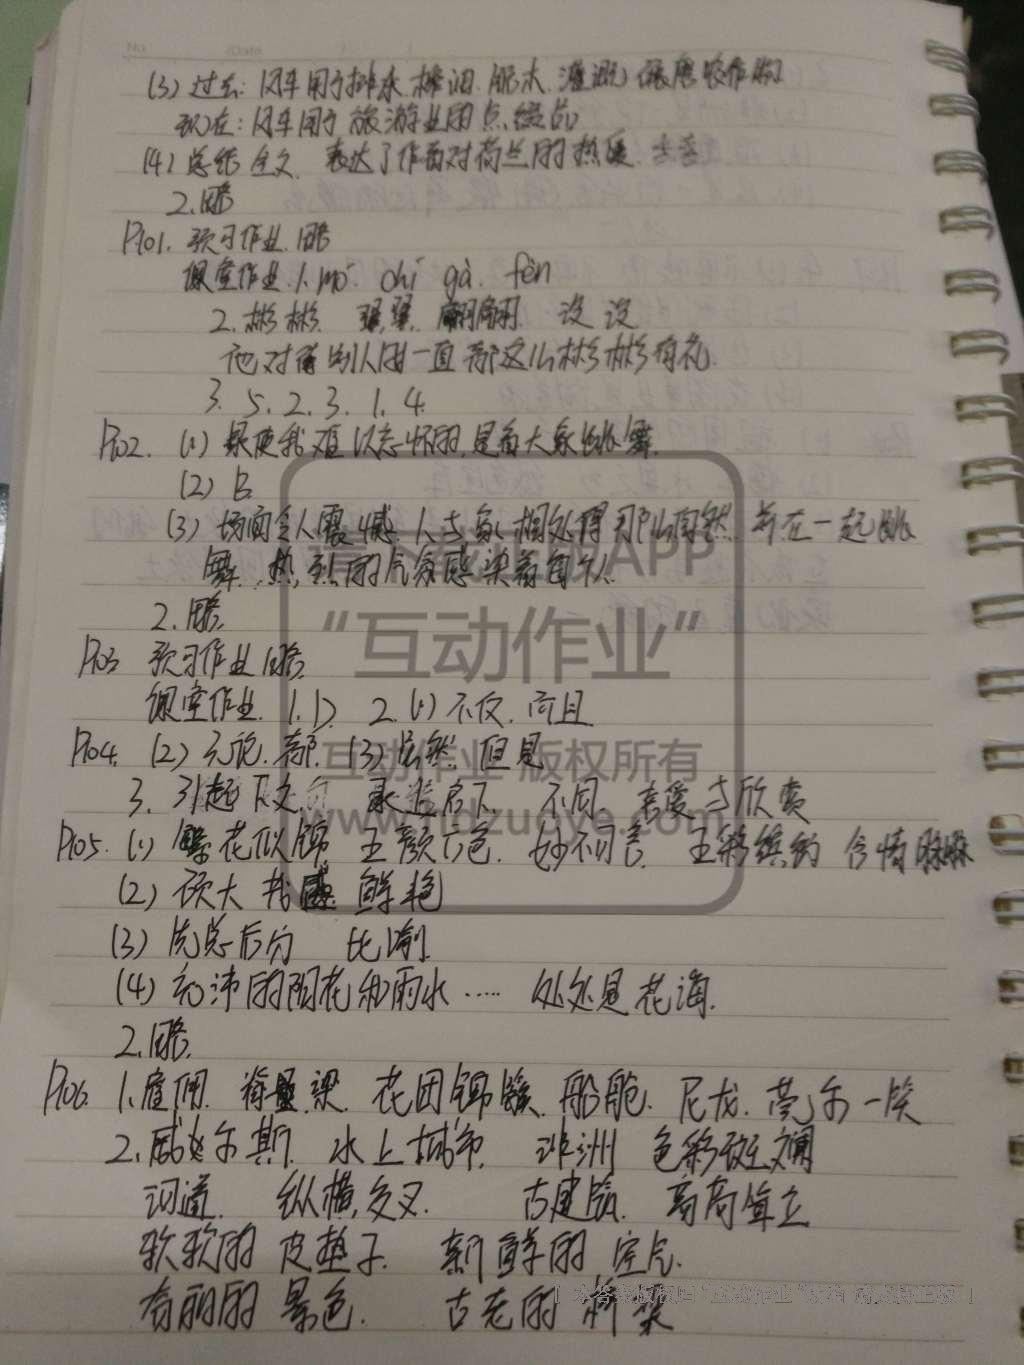 (3) 过去: 风车用于排水 榨油 锯木 灌溉
现在: 风车用于旅游业的点缀品
(4) 总结全文 表达了作者对荷兰的热爱
2.略
P101. 预习作业.略
课堂作业.1.mó chì gà. fèn
2.彬彬. 翩翩. 没没
一直都这么彬彬有礼.
3. 5. 2. 3. 1. 4.
P102. (1) 最使我难以忘怀的是看大象跳舞.
(2) B
(3) 场面令人震憾.人与象相处得那么自然.并在一起跳
舞.热烈的气氛感染着每个人.
2.略.
P103 预习作业略.
课堂作业. 1.D 2.(1)不仅.而且
P104. (2)无论.都.(3)虽然.但是
3. 引起下文 承上启下. 不同. 喜爱与欣赏
P105. (1) 繁花似锦 五颜六色. 妙不可言. 五彩缤纷 含情脉脉
(2) 硕大 鲜艳
(3) 先总后分 比喻
(4) 充沛的阳光和雨水…… 处处是花海.
2.略.
P106. 1.雇佣. 脊梁. 花团锦簇.船舱. 尼龙.莞尔一笑
2.威尼斯. 水上城市. 非洲 色彩斑斓
河道. 纵横交叉. 古建筑. 高高耸立
软软的 皮垫子. 新鲜的 空气.
有丽的 景色. 古老的 桥梁
请下载官网APP
“互动作业”
互动作业 版权所有
www.hdzuoye.com